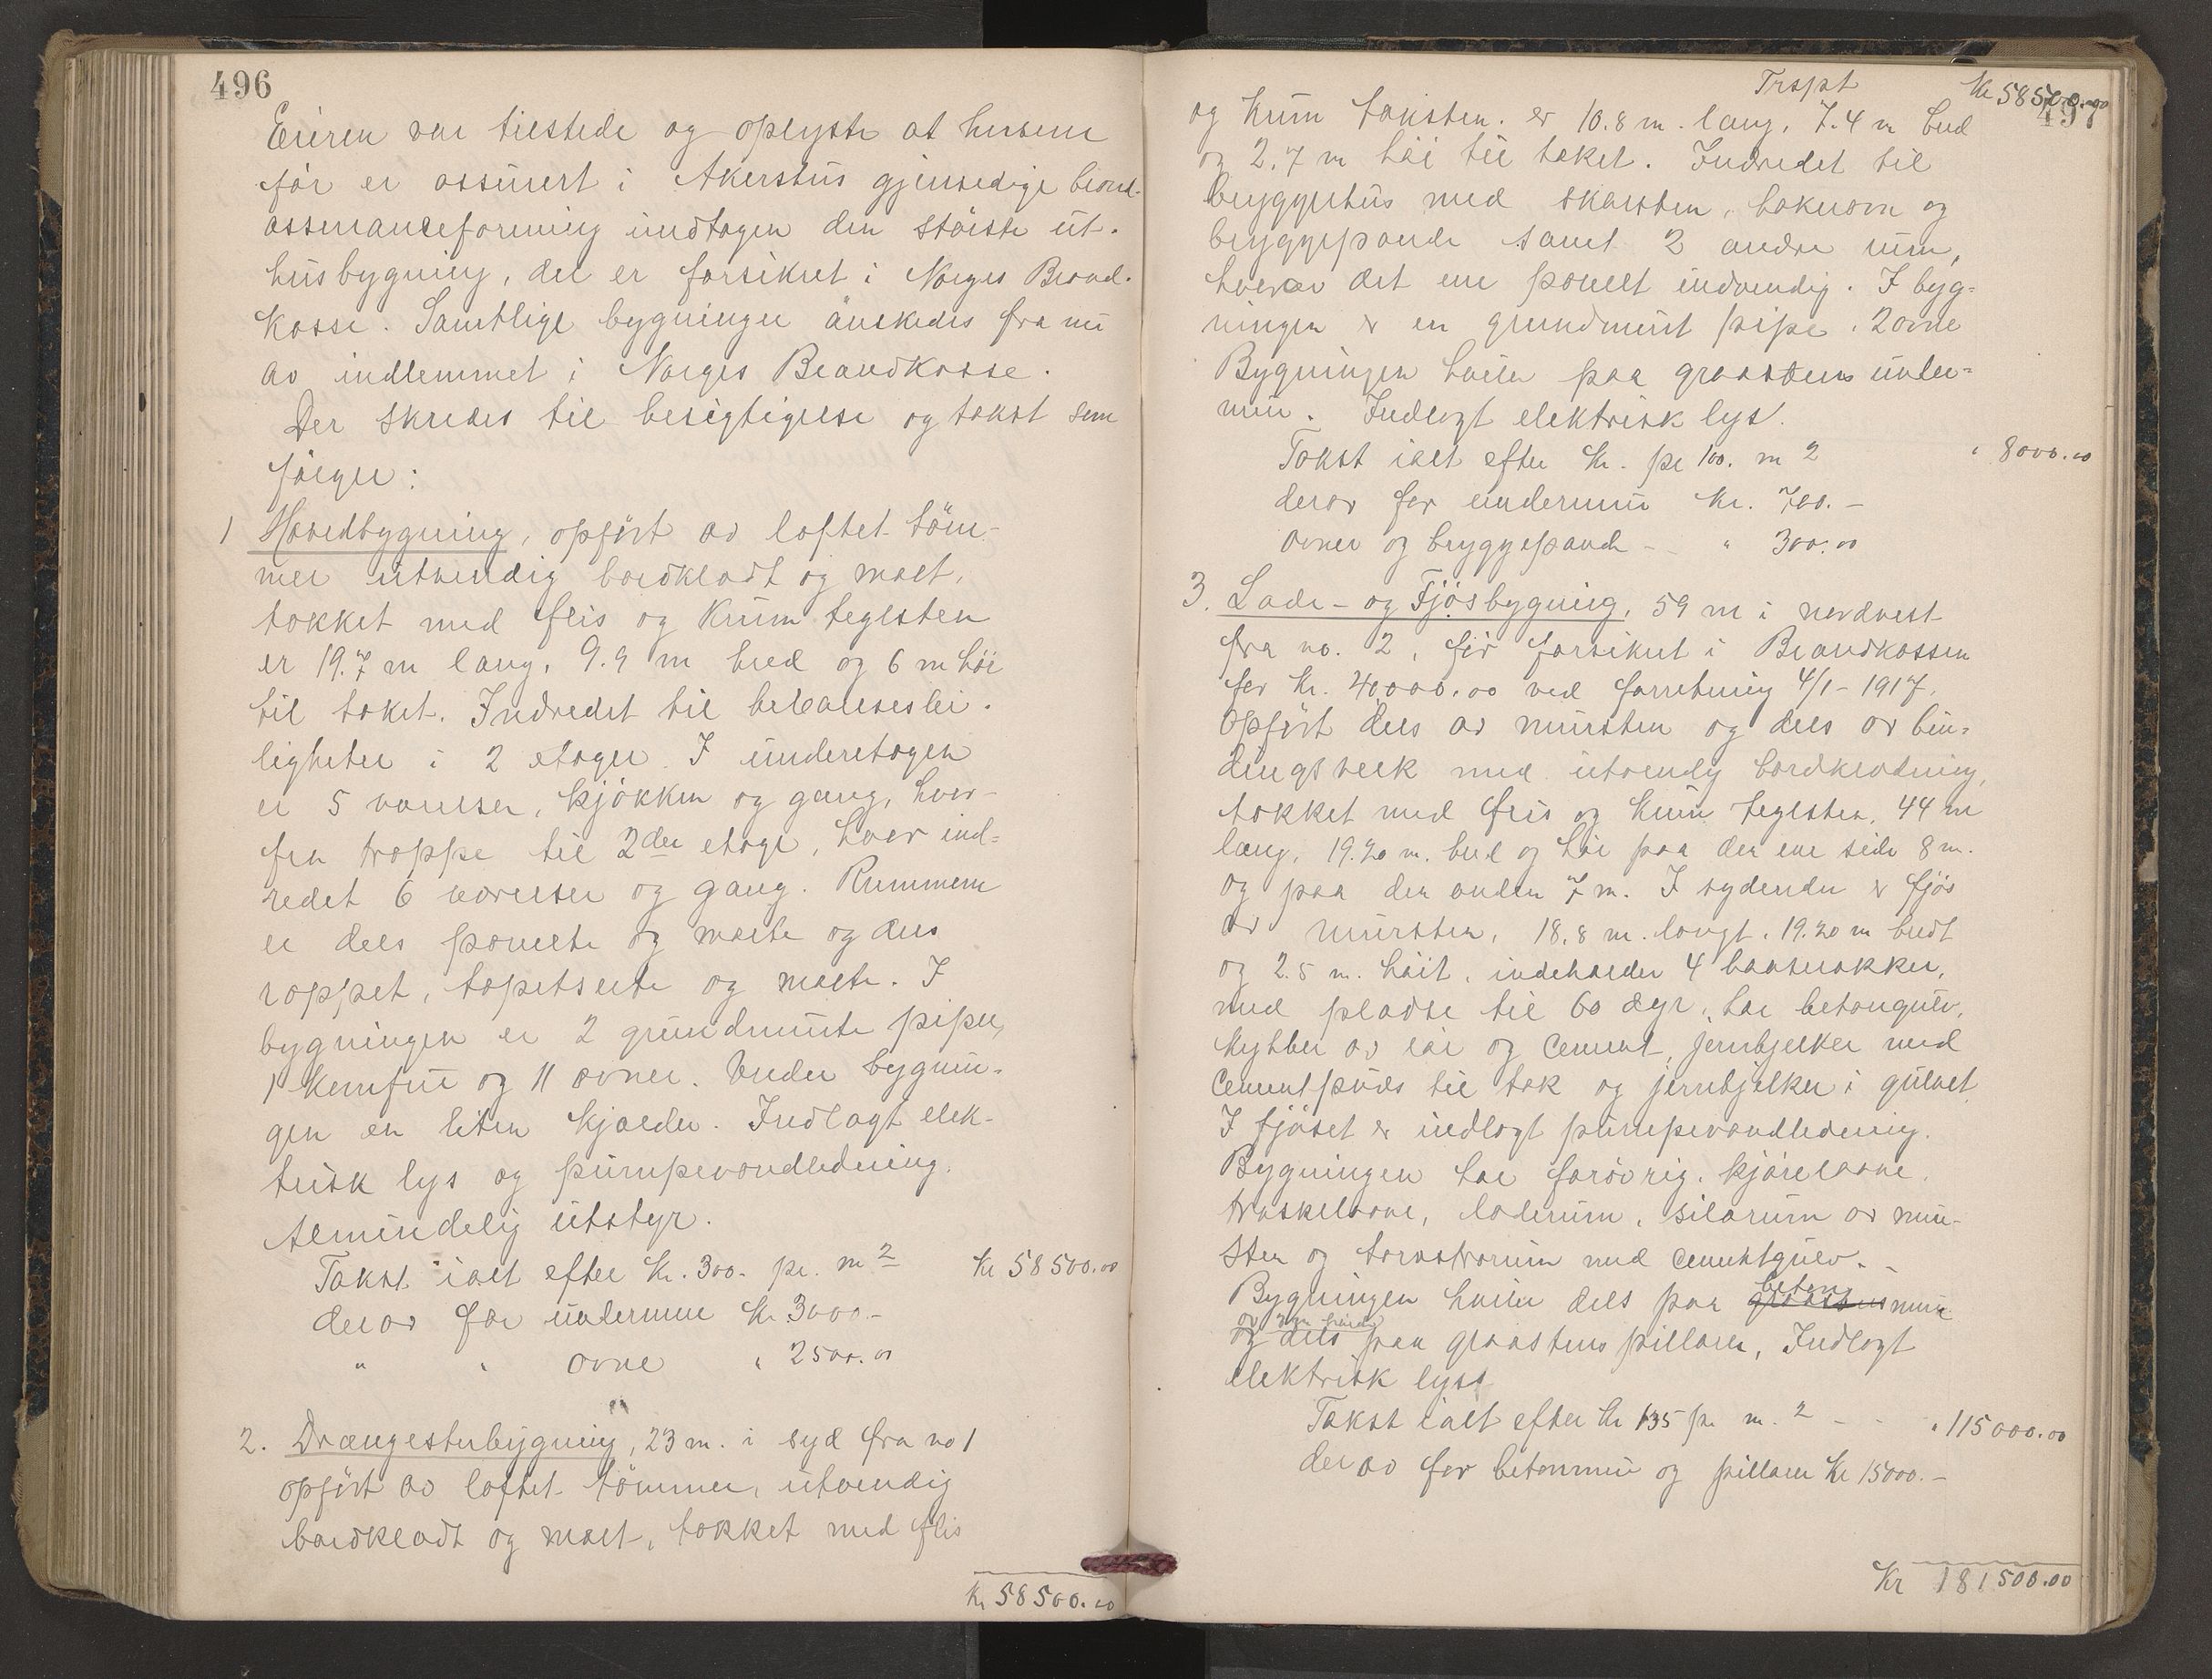 496
Eieren var tilstede og oplyste at husene
før er assurert i Akershus gjensidige brand-
assuranceforening undtagen den største ut-
husbygning, der er forsikret i Norges Brand-
kasse. Samtlige bygninger ønskedes fra nu
av indlemmet i Norges Brandkasse.
Der skredes til besigtigelse og takst som
følger:
1 Hovedbygning, opført av laftet tøm-
mer utvendig bordklædt og malt,
tækket med flis og krum teglsten
er 19.7 m lang, 9.9 m bred og 6 m høi
til taket. Indredet til beboelseslei-
ligheter i 2 etager. I underetagen
er 5 værelser, kjøkken og gang, hver-
fra trappe til 2den etage, hvor ind-
redet 6 værelser og gang. Rummene
er dels panelte og malte og dels
rappet, tapetserte og malte. I
bygningen er 2 grundmurte piper,
1 komfur og 11 ovner. Under bygnin-
gen en liten kjælder. Indlagt elek-
trisk lys og pumpevandledning.
Almindelig utstyr.
Takst ialt efter Kr. 300.- pr. m2 Kr 58500.00
derav for undermur Kr. 3000.-
" " ovne " 2500.00
2. Drængestubygning, 23 m. i syd fra no 1
opført av laftet tømmer, utvendig
bordklædt og malt, tækket med flis
Kr 58500.00
Trspt Kr 58500.00
497
og krum taksten. er 10.8 m. lang, 7.4 m bred
og 2.7 m høi til taket. Indredet til
bryggerhus med skorsten, bakerovn og
bryggepande samt 2 andre rum,
hvorav det ene panelt indvendig. I byg-
ningen er en grundmurt pipe, 2 ovne
Bygningen hviler paa graastens under-
mur. Indlagt elektrisk lys.
Takst ialt efter Kr. pr 100. m 2 " 8000.00
derav for undermur Kr. 700.-
ovner og bryggepande - " 300.00
3. Lade- og Fjøsbygning, 59 m i nordvest
fra no. 2, før forsikret i Brandkassen
for Kr. 40000.00 ved forretning 4/1-1917,
opført dels av mursten og dels av bin-
dingsverk med utvendig bordklædning,
tækket med flis og krum teglsten, 44 m
lang, 19.20 m. bred og høi paa den ene side 8 m.
og paa den anden 7 m. I sydenden er fjøs
av mursten, 18.8 m. langt, 19.20 m bredt
og 2.5 m. høit, indeholder 4 baaserækker,
med pladse til 60 dyr, har betongulv,
krybber av ler og cement, jernbjelker med
cementpuds til tak og jernbjelker i gulvet
I fjøset er indlagt pumpevandledning.
Bygningen har forøvrig kjørelaave,
træskelaave, laderum, silorum av mur-
sten og torvstrørum med cementgulv. -
Bygningen hviler dels paa graastens beton mur
og dels paa graastens pillarer, Indlagt
elektrisk lys
Takst ialt efter Kr 135 pr. m. 2 - - " 115000.00
derav for betonmur og pillarer Kr 15000.-
Kr 181500.00